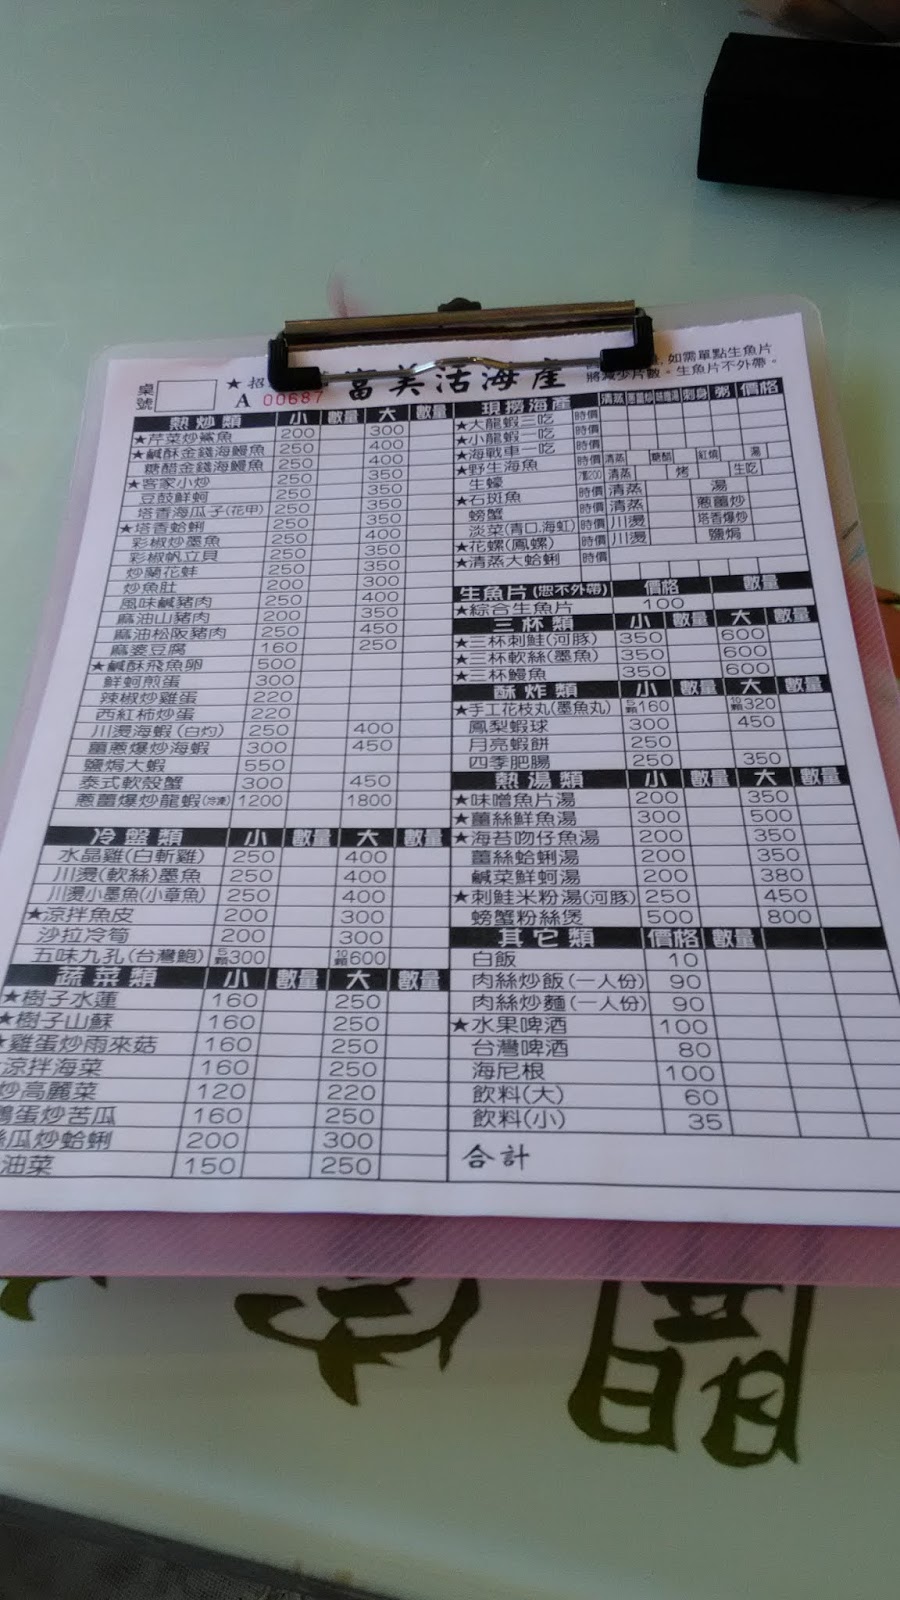 桌號
★招
A 00687
富美活海產
如需單點生魚片
將減少片數。生魚片不外帶。
熱炒類 小 數量 大 數量
★芹菜炒鯊魚 200 300
★鹹酥金錢海鰻魚 250 400
糖醋金錢海鰻魚 250 400
★客家小炒 250 350
豆鼓鮮蚵 250 350
塔香海瓜子(花甲) 250 350
★塔香蛤蜊 250 350
彩椒炒墨魚 250 400
彩椒帆立貝 250 350
炒蘭花蚌 250 350
炒魚肚 200 300
風味鹹豬肉 250 400
麻油山豬肉 200 350
麻油松阪豬肉 250 450
麻婆豆腐 160 250
★鹹酥飛魚卵 500
鮮蚵煎蛋 300
辣椒炒雞蛋 220
西紅柿炒蛋 220
川燙海蝦(白灼) 250 400
薑蔥爆炒海蝦 300 450
鹽焗大蝦 550
泰式軟殼蟹 300 450
蔥薑爆炒龍蝦(冷凍) 1200 1800
冷盤類 小 數量 大 數量
水晶雞(白斬雞) 250 400
川燙(軟絲)墨魚 250 400
川燙小墨魚(小章魚) 250 400
★涼拌魚皮 200 300
沙拉冷筍 200 300
五味九孔(台灣鮑) 5顆300 10顆600
蔬菜類 小 數量 大 數量
★樹子水蓮 160 250
★樹子山蘇 160 250
★雞蛋炒雨來菇 160 250
涼拌海菜 160 250
炒高麗菜 120 220
蛋炒苦瓜 160 250
瓜炒蛤蜊 200 300
油菜 150 250
現撈海產 清蒸 刺身 粥 價格
★大龍蝦三吃 時價
★小龍蝦二吃 時價
★海戰車一吃 時價
★野生海魚 時價 清蒸 糖醋 紅燒 湯
生蠔 清蒸 烤 生吃
★石斑魚 時價 清蒸 湯
螃蟹 時價 清蒸 蔥薑炒
淡菜(青口.海虹) 時價 川燙 塔香爆炒
★花螺(鳳螺) 時價 川燙 鹽焗
★清蒸大蛤蜊 時價
生魚片(恕不外帶) 價格 數量
★綜合生魚片 100
三杯類 小 數量 大 數量
★三杯刺鮭(河豚) 350 600
★三杯軟絲(墨魚) 350 600
★三杯鰻魚 350 600
酥炸類 小 數量 大 數量
★手工花枝丸(墨魚丸) 5顆160 10顆320
鳳梨蝦球 300 450
月亮蝦餅 250
四季肥腸 250 350
熱湯類 小 數量 大 數量
★味噌魚片湯 200 350
★薑絲鮮魚湯 300 500
★海苔吻仔魚湯 200 350
薑絲蛤蜊湯 200 350
鹹菜鮮蚵湯 200 380
★刺鮭米粉湯(河豚) 250 450
螃蟹粉絲煲 500 800
其它類 價格 數量
白飯 10
肉絲炒飯(一人份) 90
肉絲炒麵(一人份) 90
★水果啤酒 100
台灣啤酒 80
海尼根 100
飲料(大) 60
飲料(小) 35
合計